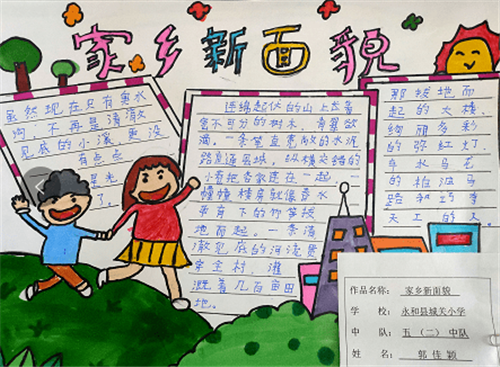 家乡新面貌
虽然现在只有臭水
沟,不再是清澈
见底的小溪,更没
有点点
星光
了。
连绵起伏的山上长着
密不可分的树木,青翠欲
滴。一条笔直宽敞的水泥
路直通县城,纵横交错的
小巷把各家连在一起。一
幢幢楼房就像春水
地而起。一条清
澈见底的河流贯
穿全村,灌
溉着几百亩田
地。
那拔地而
起的大楼,
绚丽多彩
的弥虹灯,
车水马龙
的柏油马
路和巧夺
天工的人
作品名称: 家乡新面貌
学校: 永和县城关小学
中队: 五(二)中队
姓名: 郭佳颖